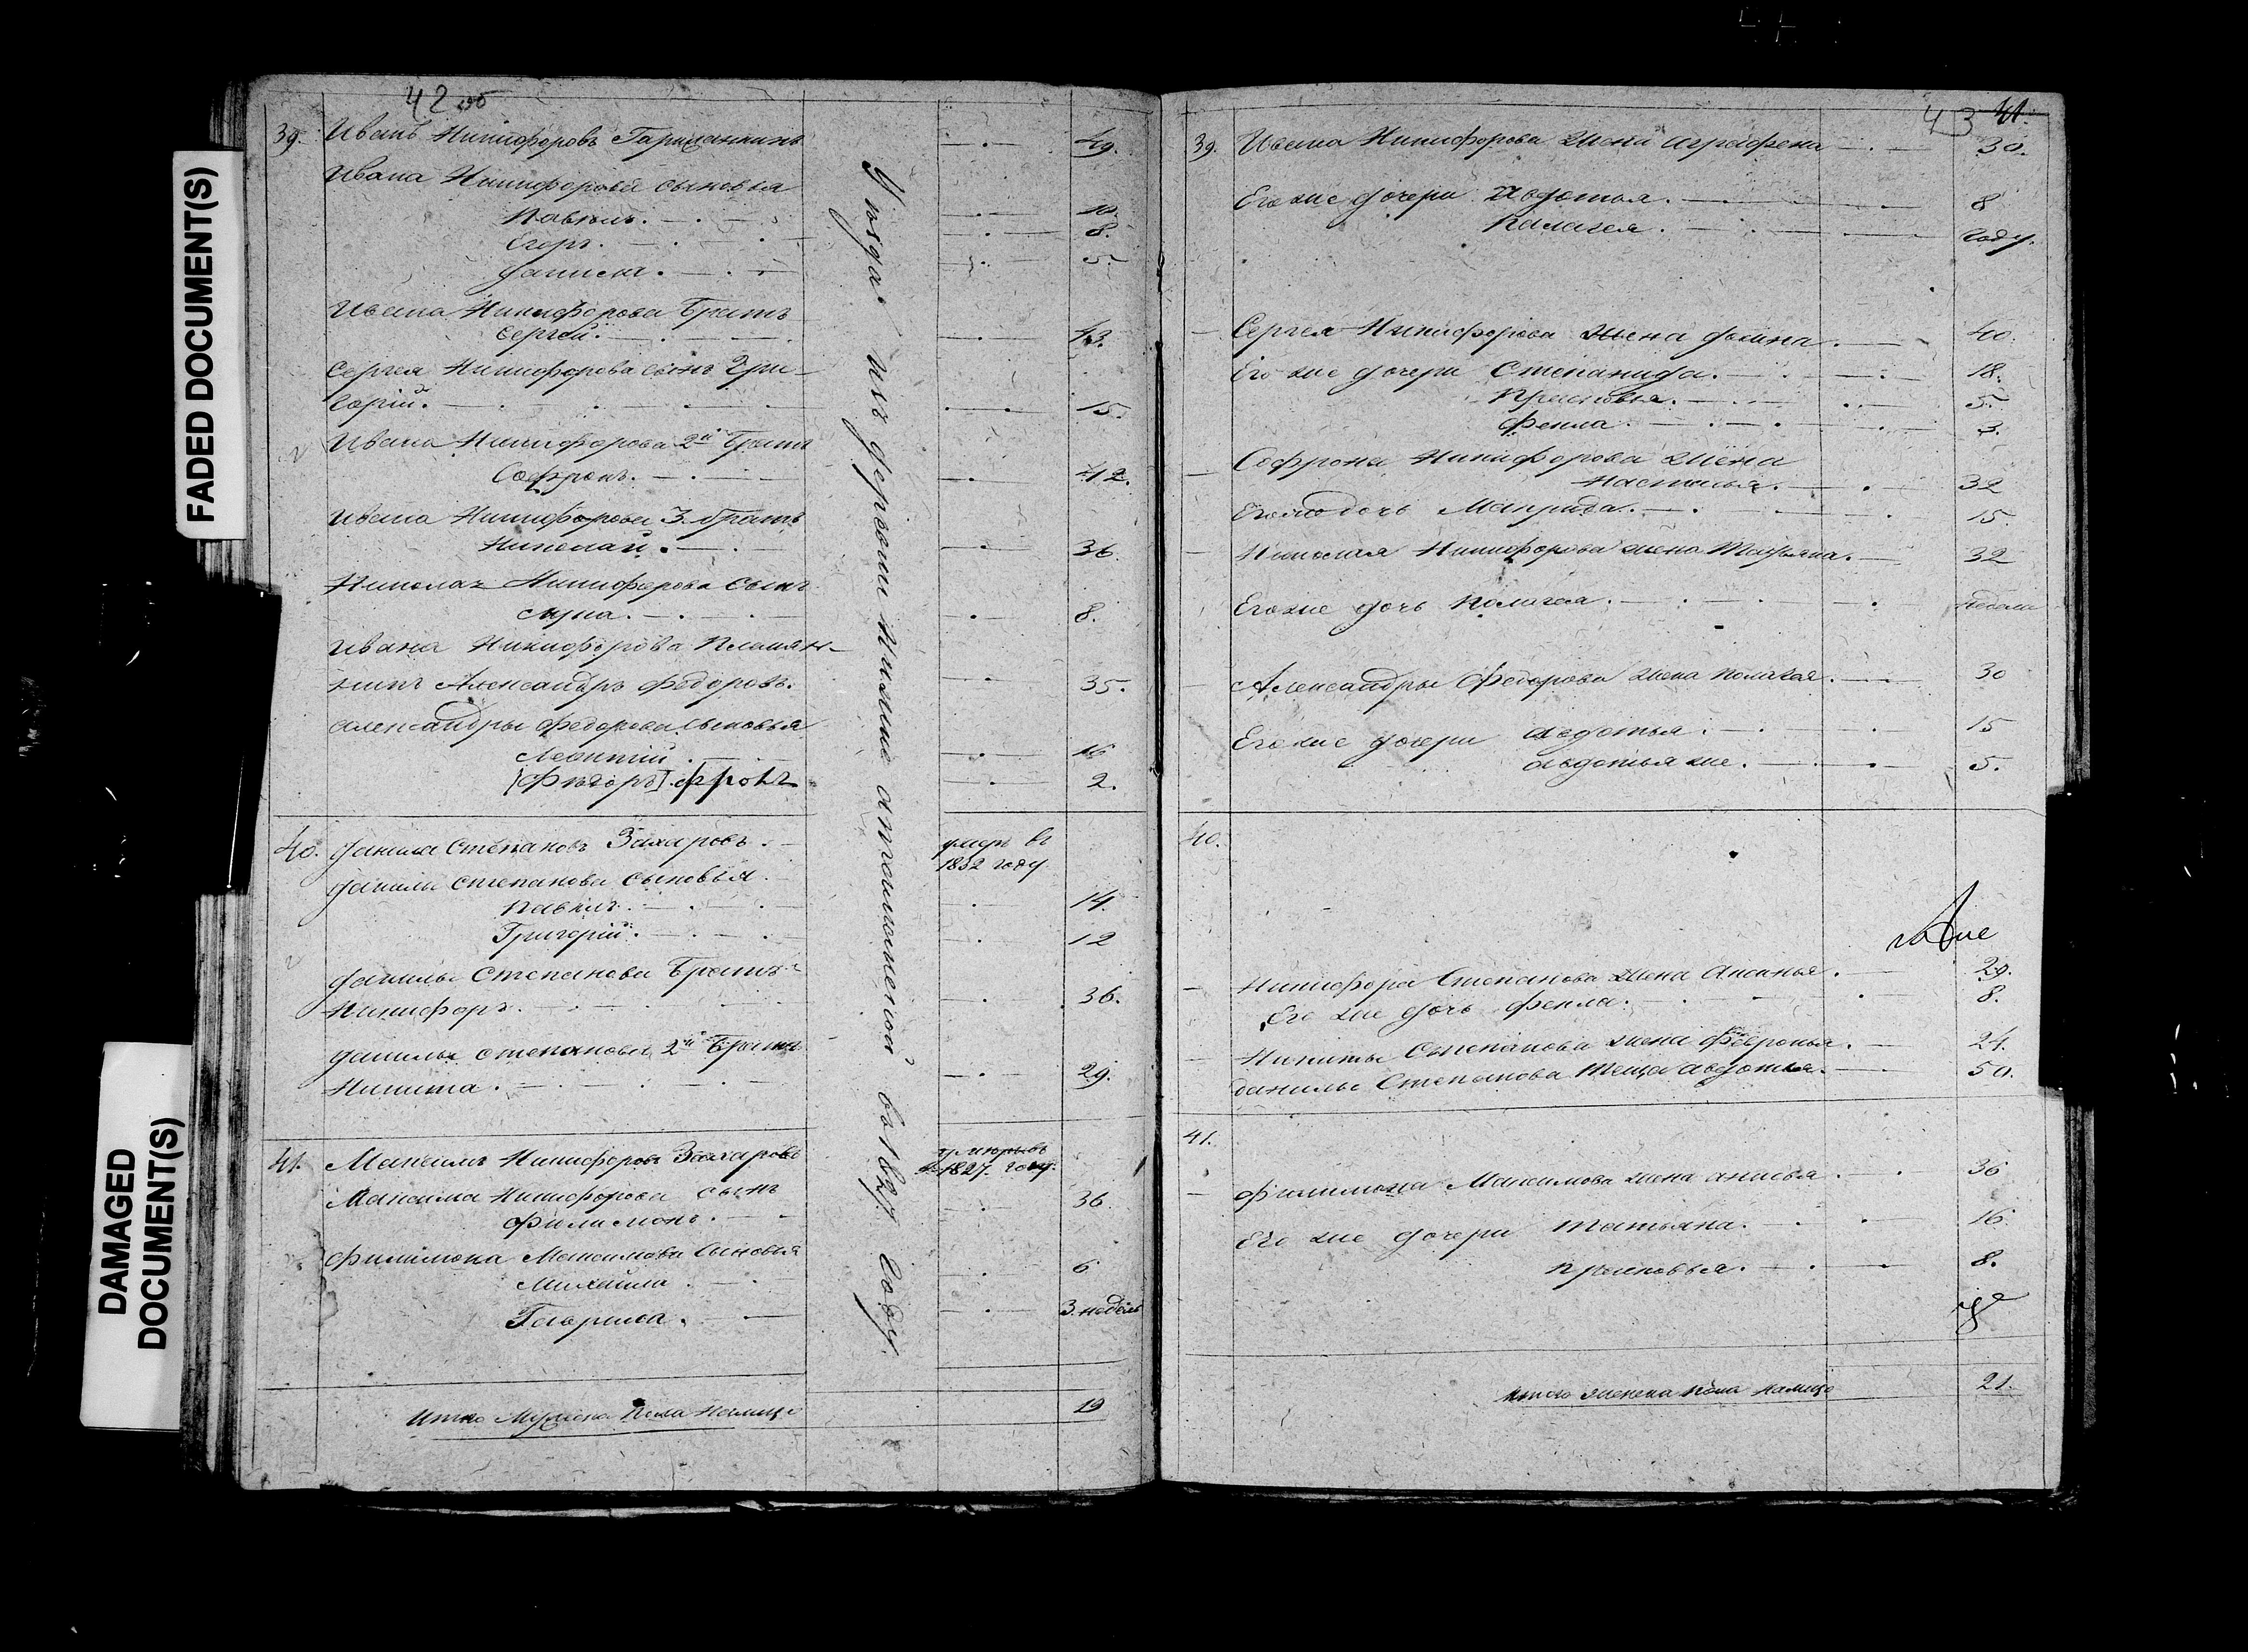 FADED DOCUMENT(S)
DAMAGED
DOCUMENT(S)
42 об
39. Иванъ Никифоровъ 49.
Ивана Никифорова сыновья
Павелъ. 10.
Егоръ. 8.
Данила. 5.
Ивана Никифорова Братъ
Сергей. 43.
Сергея Никифорова сынъ Гри-
горій. 15.
Ивана Никифорова 2й Братъ
Софронъ. 42.
Ивана Никифорова 3. братъ
Николай. 36.
Николая Никифорова сынъ
Лука. 8.
Ивана Никифорова Племян-
никъ Александръ Федоровъ. 35.
Александры Федорова сыновья
Леонтій 16
[Фѣдоръ] 2.
40. Данила Степановъ Захаровъ. умеръ въ
1832 году
Данилы Степанова сыновья.
Павелъ. 14.
Григорій. 12
Данилы Степанова Братъ
Никифоръ. 36.
Данилы Степанова 2й Братъ
Никита. 29.
41. Максимъ Никифоровъ Захаровъ
въ 1827. году.
Максима Никифорова сынъ 36.
Филимонъ.
Филимона Максимова сыновья
Михайла 6
Гаврила. 3. недѣль
Итого Мужеска Пола Налицо 19
въ году.
43 41.
39. Ивана Никифорова жена Аграфена 30.
Его же дочери Авдотья. 8
Палагея. году.
Сергея Никифорова жена 40.
Его же дочери Степанида. 18.
Прасковья. 5.
Фекла. 3.
Софрона Никифорова жена
Настасья. 32
Его же дочь 15.
Николая Никифорова жена Татьяна. 32
Его же дочь Палагея. недели
Александры Федорова жена Палагея. 30
Его же дочери Авдотья. 15
Авдотья же. 5.
40.
Никифора Степанова жена Аксинья. 29.
Его же дочь Фекла. 8.
Никиты Степанова жена Февронья. 24.
Данилы Степанова Теща Авдотья. 50.
41.
Филимона Максимова жена Анисья. 36
Его же дочери Татьяна. 16.
Прасковья. 8.
Итого женска пола налицо 21.